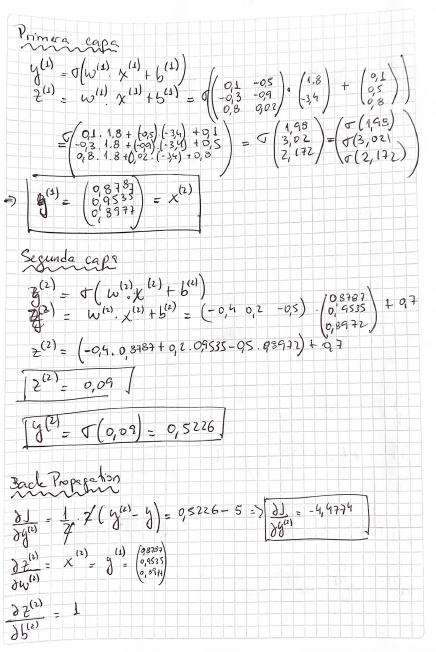 Primera capa
y⁽¹⁾ = σ(w⁽¹⁾ · x⁽¹⁾ + b⁽¹⁾)
z⁽¹⁾ = w⁽¹⁾ · x⁽¹⁾ + b⁽¹⁾ = σ((0,1 -0,5; -0,3 -0,9; 0,8 0,02) · (1.8; -3,4) + (0,1; 0,5; 0,8))
= σ(0,1 · 1.8 + (-0,5) · (-3,4) + 0,1; -0,3 · 1.8 + (-0,9) · (-3,4) + 0,5; 0,8 · 1.8 + 0,02 · (-3,4) + 0,8) = σ(1,98; 3,02; 2,172) = (σ(1,98); σ(3,02); σ(2,172))
⇒ y⁽¹⁾ = (0,8787; 0,9535; 0,8977) = x⁽²⁾
Segunda capa
y⁽²⁾ = σ(w⁽²⁾ · x⁽²⁾ + b⁽²⁾)
z⁽²⁾ = w⁽²⁾ · x⁽²⁾ + b⁽²⁾ = (-0,4 0,2 -0,5) · (0,8787; 0,9535; 0,8972) + 0,7
z⁽²⁾ = (-0,4 · 0,8787 + 0,2 · 0.9535 - 0,5 · 0,8972) + 0,7
z⁽²⁾ = 0,09
y⁽²⁾ = σ(0,09) = 0,5226
Back Propagation
∂J/∂y⁽²⁾ = 1/2 · 2 (y⁽²⁾ - y) = 0,5226 - 5 => ∂J/∂y⁽²⁾ = -4,4774
∂z⁽²⁾/∂w⁽²⁾ = x⁽²⁾ = y⁽¹⁾ = (0,8787; 0,9535; 0,8977)
∂z⁽²⁾/∂b⁽²⁾ = 1